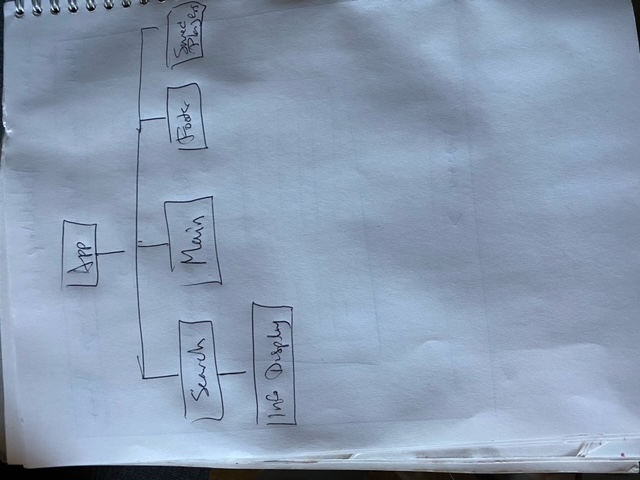 App
Search
Main
Footer
Saved
Players
Info Display